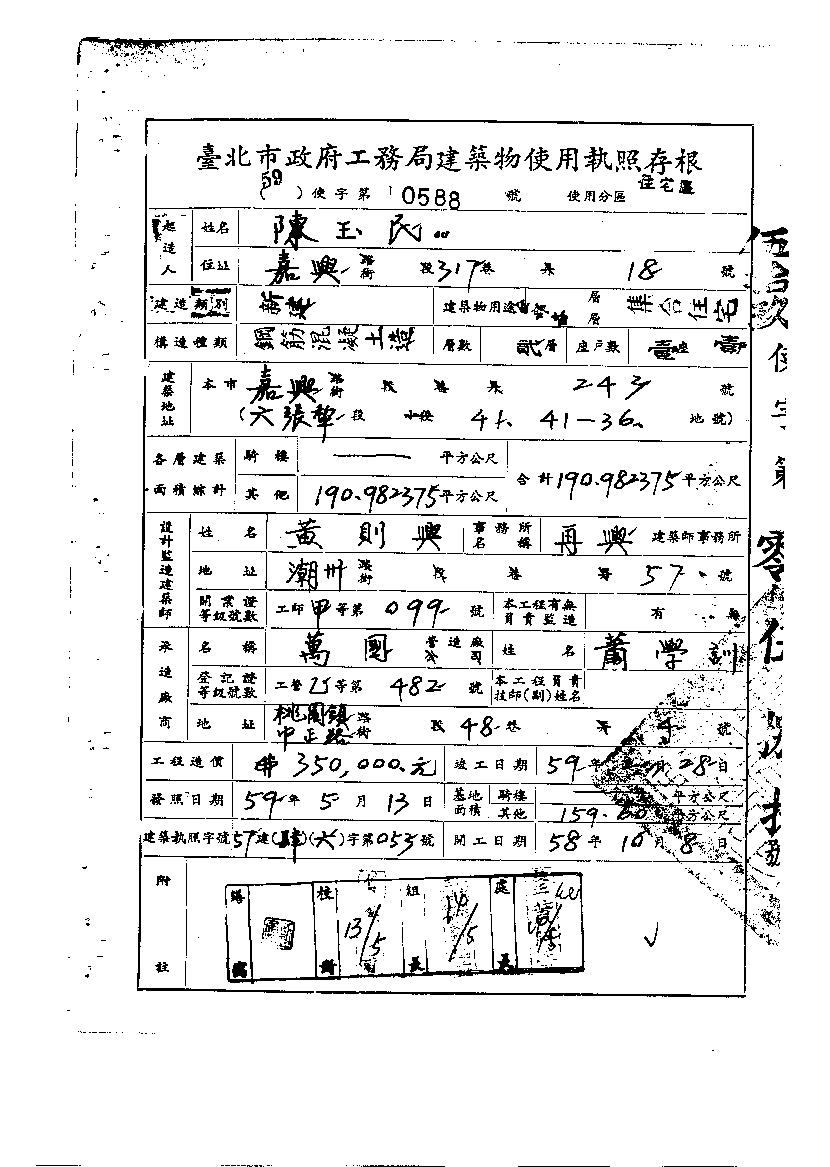 臺北市政府工務局建築物使用執照存根
(59)使字第 0588 號 使用分區 住宅區
起造人 姓名 陳玉民
住址 嘉興 路街 段 317 巷 弄 18 號
建造類別 新建 建築物用途 層層 集合住宅
構造種類 鋼筋混凝土造 層數 貳層 座戶數 壹座 壹
建築地址 本市 嘉興 路街 段 巷 弄 243 號
(六張犁 段 小段 41. 41-36. 地號)
各層建築面積總計 騎樓 — 平方公尺 合計 190.982375 平方公尺
其他 190.982375 平方公尺
設計監造建築師 姓名 黃則興 事務所名稱 再興 建築師事務所
地址 潮州 路街 段 巷 弄 57 號
開業證等級號數 工師 甲 等第 099 號 本工程有無負責監造 有 無
承造廠商 名稱 萬國 營造廠公司 姓名 蕭學訓
登記證等級號數 工營 乙 等第 482 號 本工程負責技師(副)姓名
地址 桃園鎮中正路 路街 段 48 巷 弄 4 號
工程造價 350,000.元 竣工日期 59 年 月 28 日
發照日期 59 年 5 月 13 日 基地面積 騎樓 平方公尺
其他 159.60 平方公尺
建築執照字號 57 建( )(六)字第 053 號 開工日期 58 年 10 月 8 日
附註
繕寫 校對 13/5 組長 處長
伍玖使字第零伍捌捌號